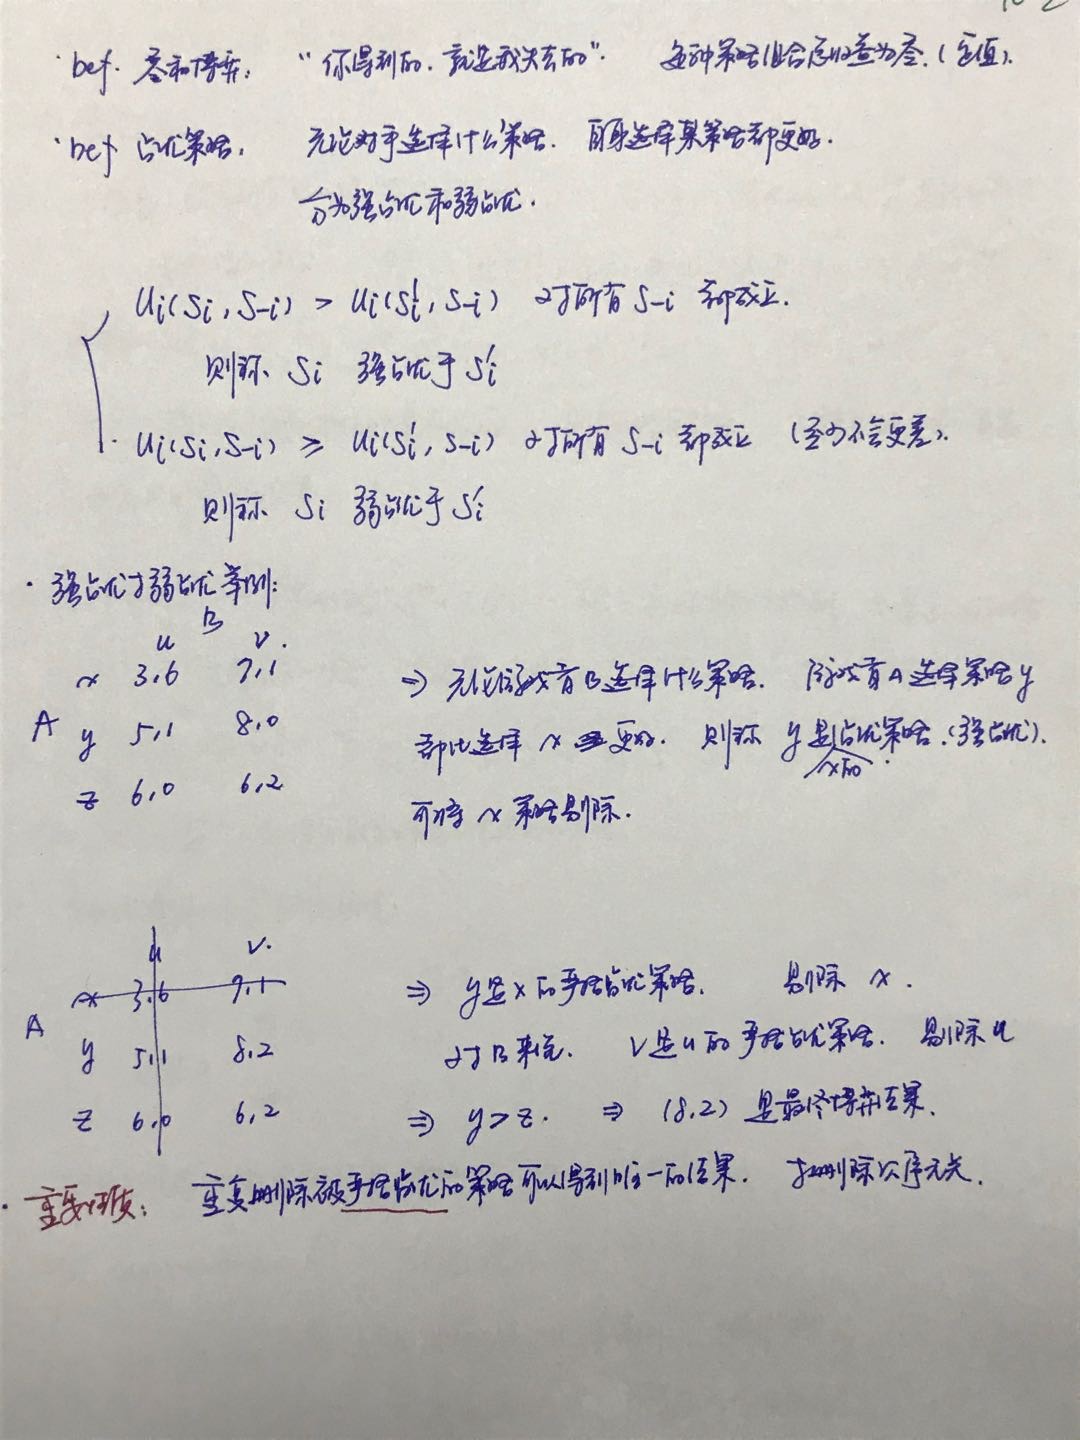 · Def. 零和博弈: “你得到的. 就是我失去的”. 每种策略组合总收益为零.(定值).
· Def 占优策略. 无论对手选择什么策略. 自身选择某策略都更好.
分为强占优和弱占优.
Ui(Si, S-i) > Ui(Si', S-i) 对所有 S-i 都成立.
则称 Si 强占优于 Si'
· Ui(Si, S-i) ≥ Ui(Si', S-i) 对所有 S-i 都成立 (至少不会更差).
则称 Si 弱占优于 Si'
· 强占优于弱占优举例:
B
u v.
x 3,6 7,1 ⇒ 无论游戏者B选择什么策略. 游戏者A选择策略y
A y 5,1 8,0 都比选择 x 更好. 则称 y 是x的占优策略.(强占优).
z 6,0 6,2 可将 x 策略剔除.
u v.
x 3,6 7,1 ⇒ y是x的严格占优策略. 剔除 x.
A y 5,1 8,2 对B来说. v是u的严格占优策略. 剔除 u
z 6,0 6,2 ⇒ y>z. ⇒ (8,2) 是最终博弈结果.
· 重要性质: 重复删除被严格占优的策略可以得到唯一的结果. 与删除次序无关.